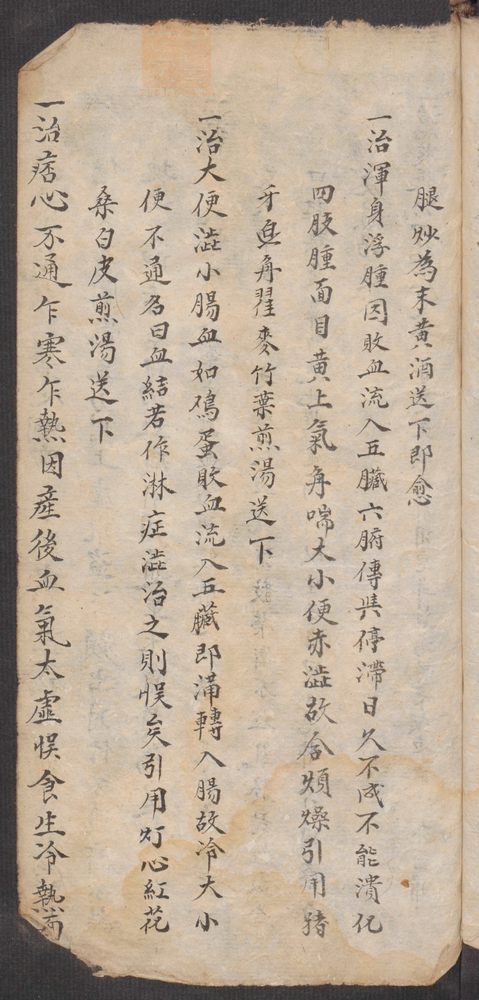 腿炒為末黃酒送下即愈
一治渾身浮腫因敗血流入五臟六腑傳其停滯日久不成不能潰化
四肢腫面目黃上氣舟喘大小便赤澁故含煩燥引用猪
牙皂角瞿麥竹葉煎湯送下
一治大便澁小腸血如鳮蛋敗血流入五臟即滿轉入腸故冷大小
便不通名曰血結若作淋症澁治之則悮矣引用灯心紅花
桑白皮煎湯送下
一治痞心不通乍寒乍熱因產後血氣太虛悮食生冷熱而